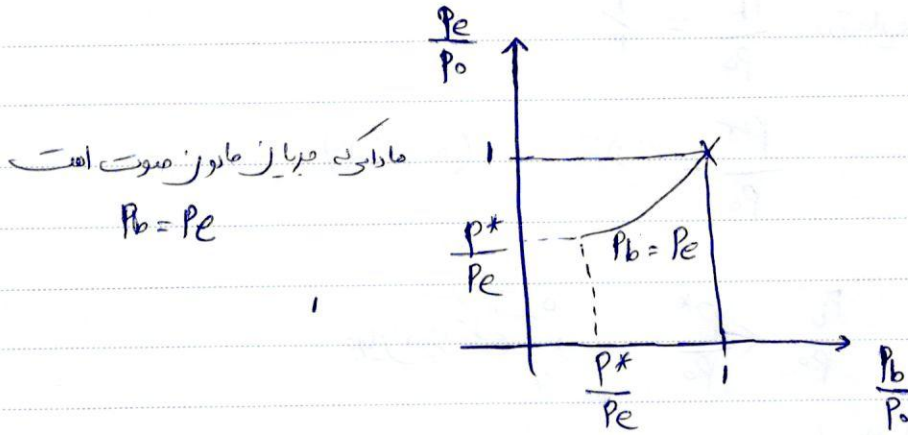 Pe/P0
مادامی که جریان مادون صوت است
1
Pb = Pe
P*/Pe
Pb = Pe
1
P*/Pe
1
Pb/P0